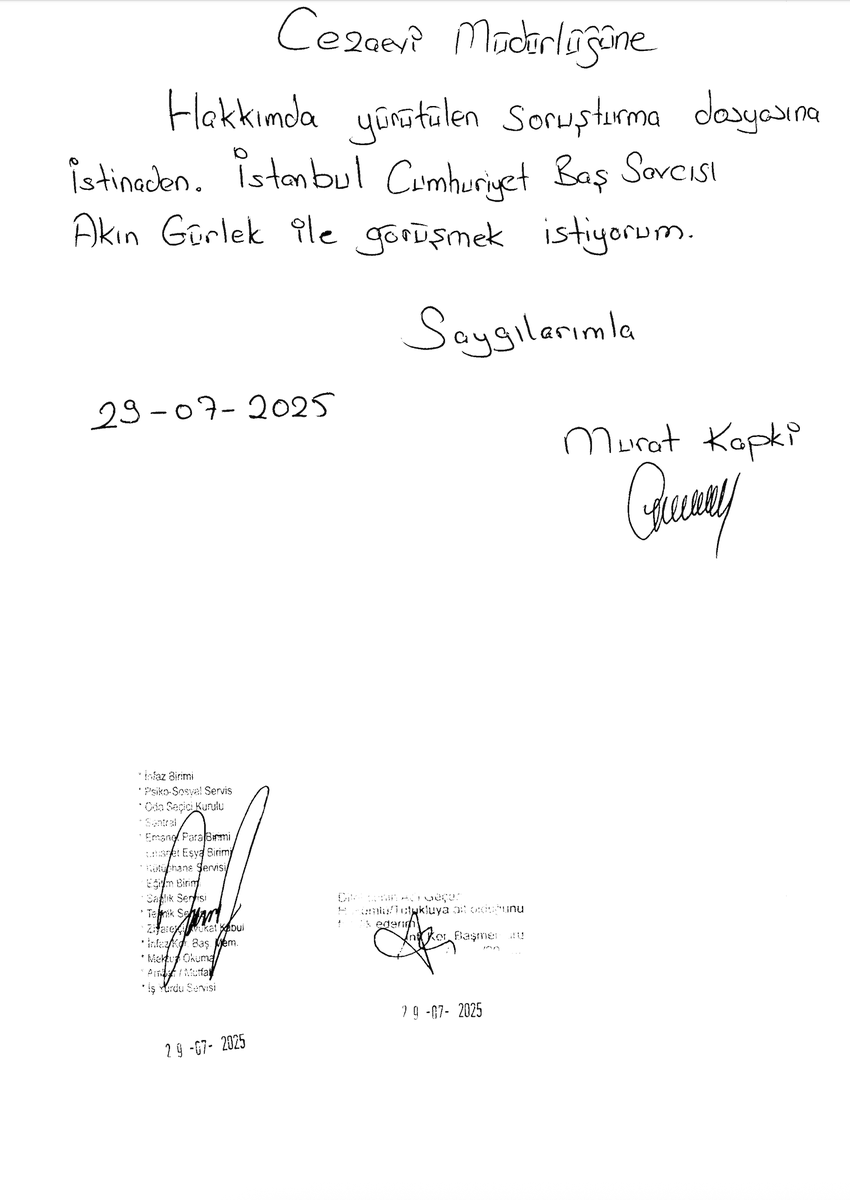 Cezaevi Müdürlüğüne
Hakkımda yürütülen soruşturma dosyasına
istinaden. İstanbul Cumhuriyet Baş Savcısı
Akın Gürlek ile görüşmek istiyorum.
Saygılarımla
29-07-2025
Murat Kapki
* İnfaz Birimi
* Psiko-Sosyal Servis
* Oda Seçici Kurulu
* Santral
* Emanet Para Birimi
Emanet Eşya Birimi
* Kütüphane Servisi
Eğitim Birimi
* Sağlık Servisi
* Teknik Servis
* Ziyaret Avukat Kabul
* İnfaz Kor. Baş Mem.
* Mektup Okuma
* Ambar / Mutfak
* İş Yurdu Servisi
29-07-2025
Hükümlü/Tutukluya ait olduğunu
ederim
Kor. Başmemuru
29-07-2025